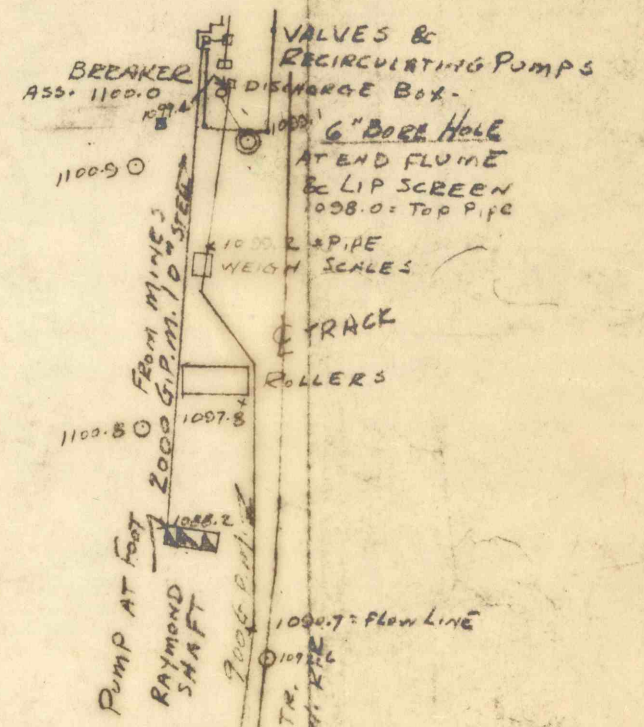 VALVES &
RECIRCULATING PUMPS
BREAKER
ASS. 1100.0
DISCHARGE BOX-
1099.4
6" BORE HOLE
AT END FLUME
& LIP SCREEN
1098.0 = TOP PIPE
1100.9
PIPE
WEIGH SCALES
FROM MINES
2000 G.P.M. 10" STEEL
TRACK
ROLLERS
1097.8
1100.8
1088.2
PUMP AT FOOT
RAYMOND
SHAFT
900 G.P.M.
1090.7 = FLOW LINE
TR.